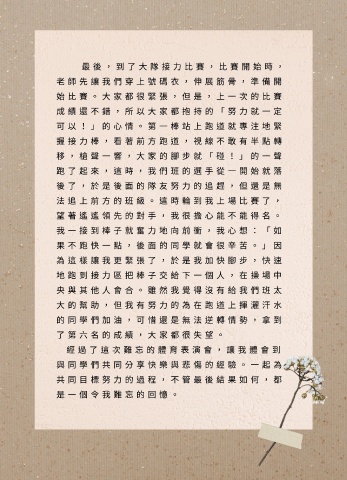 最後，到了大隊接力比賽，比賽開始時，
老師先讓我們穿上號碼衣，伸展筋骨，準備開
始比賽。大家都很緊張，但是，上一次的比賽
成績還不錯，所以大家都抱持的「努力就一定
可以！」的心情。第一棒站上跑道就專注地緊
握接力棒，看著前方跑道，視線不敢有半點轉
移，槍聲一響，大家的腳步就「碰！」的一聲
跑了起來，這時，我們班的選手從一開始就落
後了，於是後面的隊友努力的追趕，但還是無
法追上前方的班級。這時輪到我上場比賽了，
望著遙遙領先的對手，我很擔心能不能得名。
我一接到棒子就奮力地向前衝，我心想：「如
果不跑快一點，後面的同學就會很辛苦。」因
為這樣讓我更緊張了，於是我加快腳步，快速
地跑到接力區把棒子交給下一個人，在操場中
央與其他人會合。雖然我覺得沒有給我們班太
大的幫助，但我有努力的為在跑道上揮灑汗水
的同學們加油，可惜還是無法逆轉情勢，拿到
了第六名的成績，大家都很失望。
經過了這次難忘的體育表演會，讓我體會到
與同學們共同分享快樂與悲傷的經驗。一起為
共同目標努力的過程，不管最後結果如何，都
是一個令我難忘的回憶。